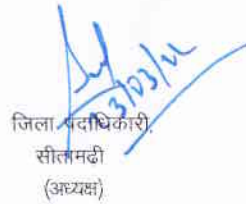 23/03/22
जिला पदाधिकारी,
सीतामढी
(अध्यक्ष)